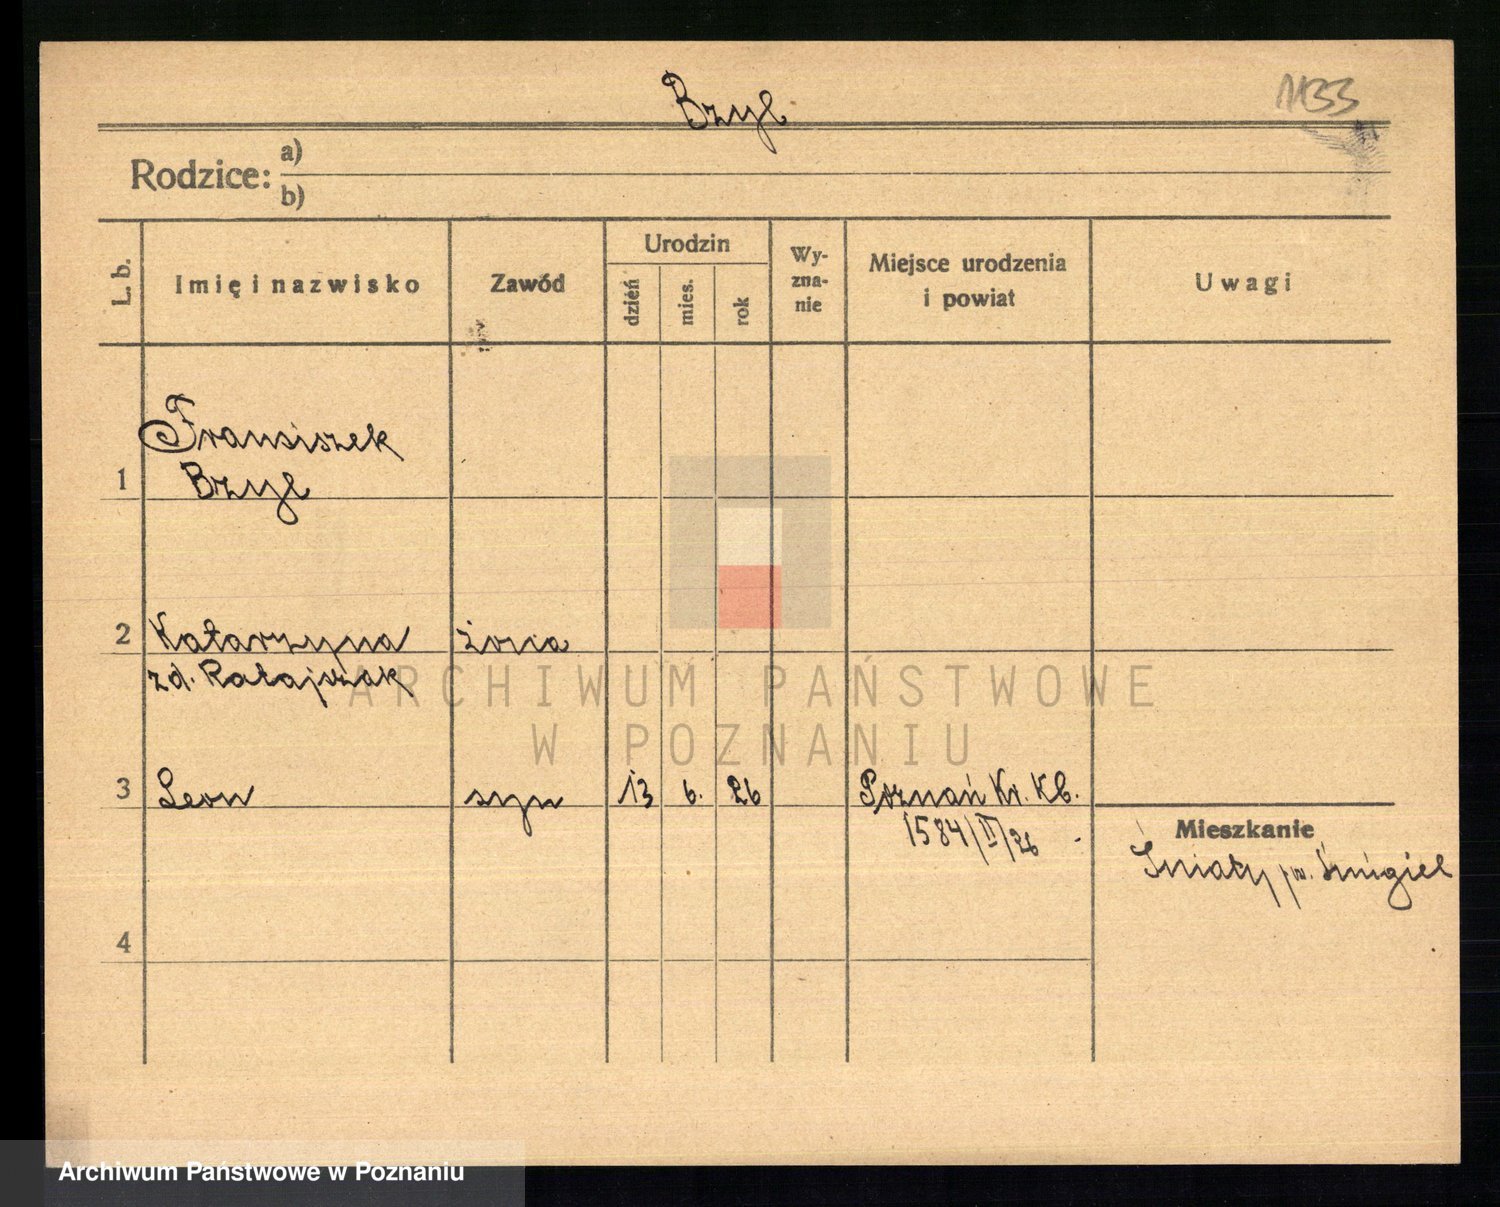 Bzyl
1133
Rodzice:
a)
b)
L. b.
Imię i nazwisko
Zawód
Urodzin
dzień
mies.
rok
Wy-
zna-
nie
Miejsce urodzenia
i powiat
Uwagi
Fransiszek
1 Bzyl
2 Katarzyna żona
zd. Ratajczak
ARCHIWUM PAŃSTWOWE
W POZNANIU
3 Leon syn 13 6. 26 Poznań Kr. Kb.
1584/II/26 -
Mieszkanie
Śniaty pw. Śmigiel
4
Archiwum Państwowe w Poznaniu